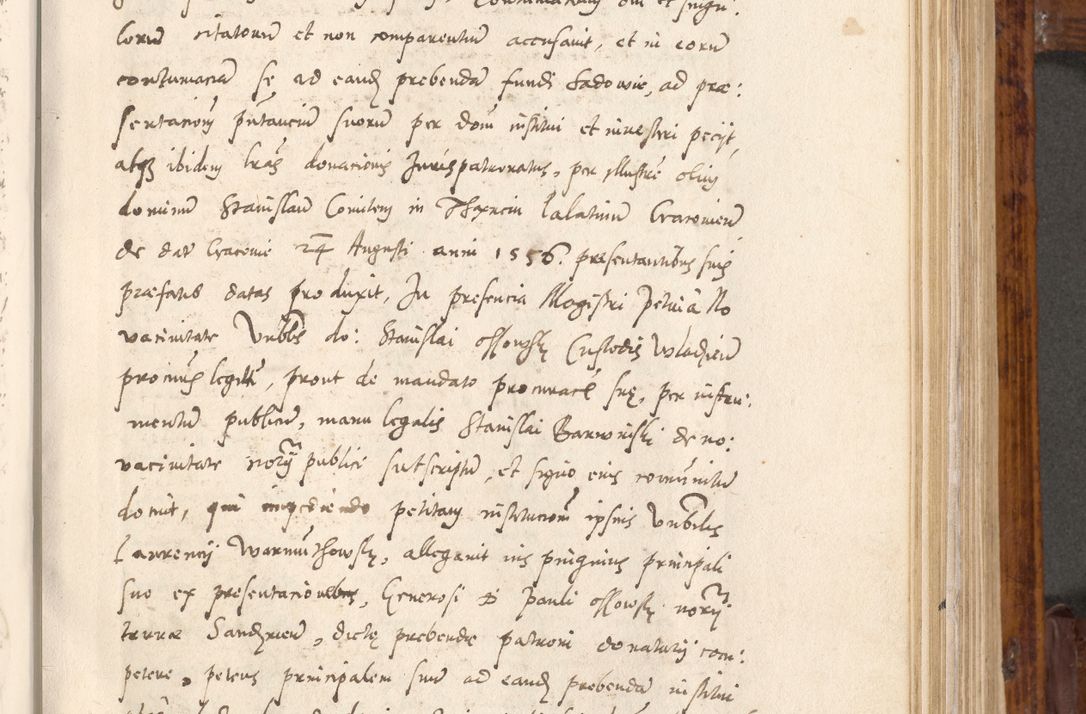 lorum citatorum et non comparentium accusavit, et in eorum
contumaciam se ad eandem prebendam fundi Sadowie, ad præ:
sentacionem suorum per dominum institui et investiri pecijt,
atque ibidem literas donacionis Jurispatronatus, per Illustrem olim
dominum Stanislaum Comitem in Thenczin Palatinum Cracoviensem
de dat Cracovie 24 Augusti anni 1556. presentantibus suis
præfatis datas produxit, In presencia Magistri Petri a No
vacivitate Venerabilis domini Stanislai Ossowsky Custodis Wladzien
procuratoris legitimi, prout de mandato procuracionis suę, per instru:
mentum publicum, manu legalis Stanislai Barwinski de no:
vacivitate notarij publici subscriptum, et signo eius communitum
docuit, qui impediendo petitam institucionem ipsius Venerabilis
Laurencij Warmuthowsky, allegavit ius pinguius principali
suo ex presentacione, Generosi D Pauli Ossowsky notarij
terræ Sandzien, dictę prebendę patroni donatarij com:
petere, petens principalem suum ad eandem prebendam institui